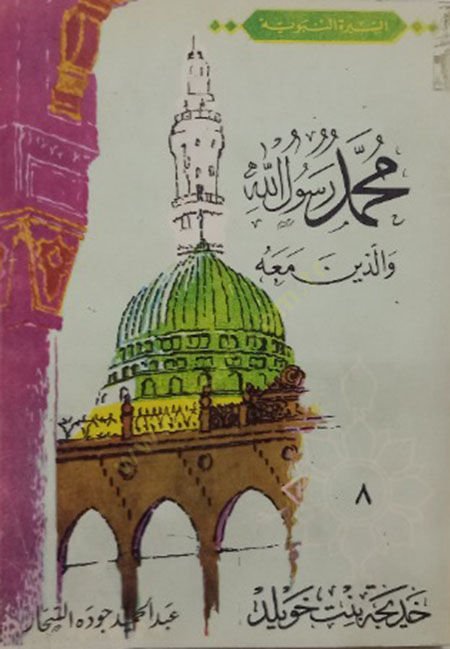 السيرة النبوية
محمد رسول الله
والذين معه
٨
خديجة بنت خويلد
عبد الحميد جوده السحار